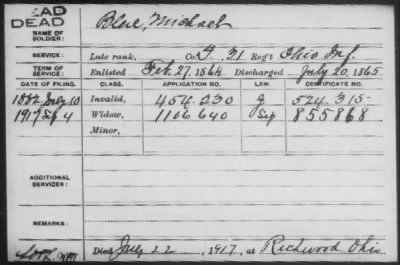 DEAD
DEAD
NAME OF SOLDIER: Blue, Michael
SERVICE: Late rank, Co. F. 31 Reg't Ohio Inf.
TERM OF SERVICE: Enlisted Feb. 27. 1864 Discharged July 20, 1865
DATE OF FILING. CLASS. APPLICATION NO. LAW. CERTIFICATE NO.
1882 July 10 Invalid, 454.030 G 524.315
1917 Sep 4 Widow, 1106640 Sep 855868
Minor,
ADDITIONAL SERVICES:
REMARKS:
Died July 22, 1917, at Richwood Ohio